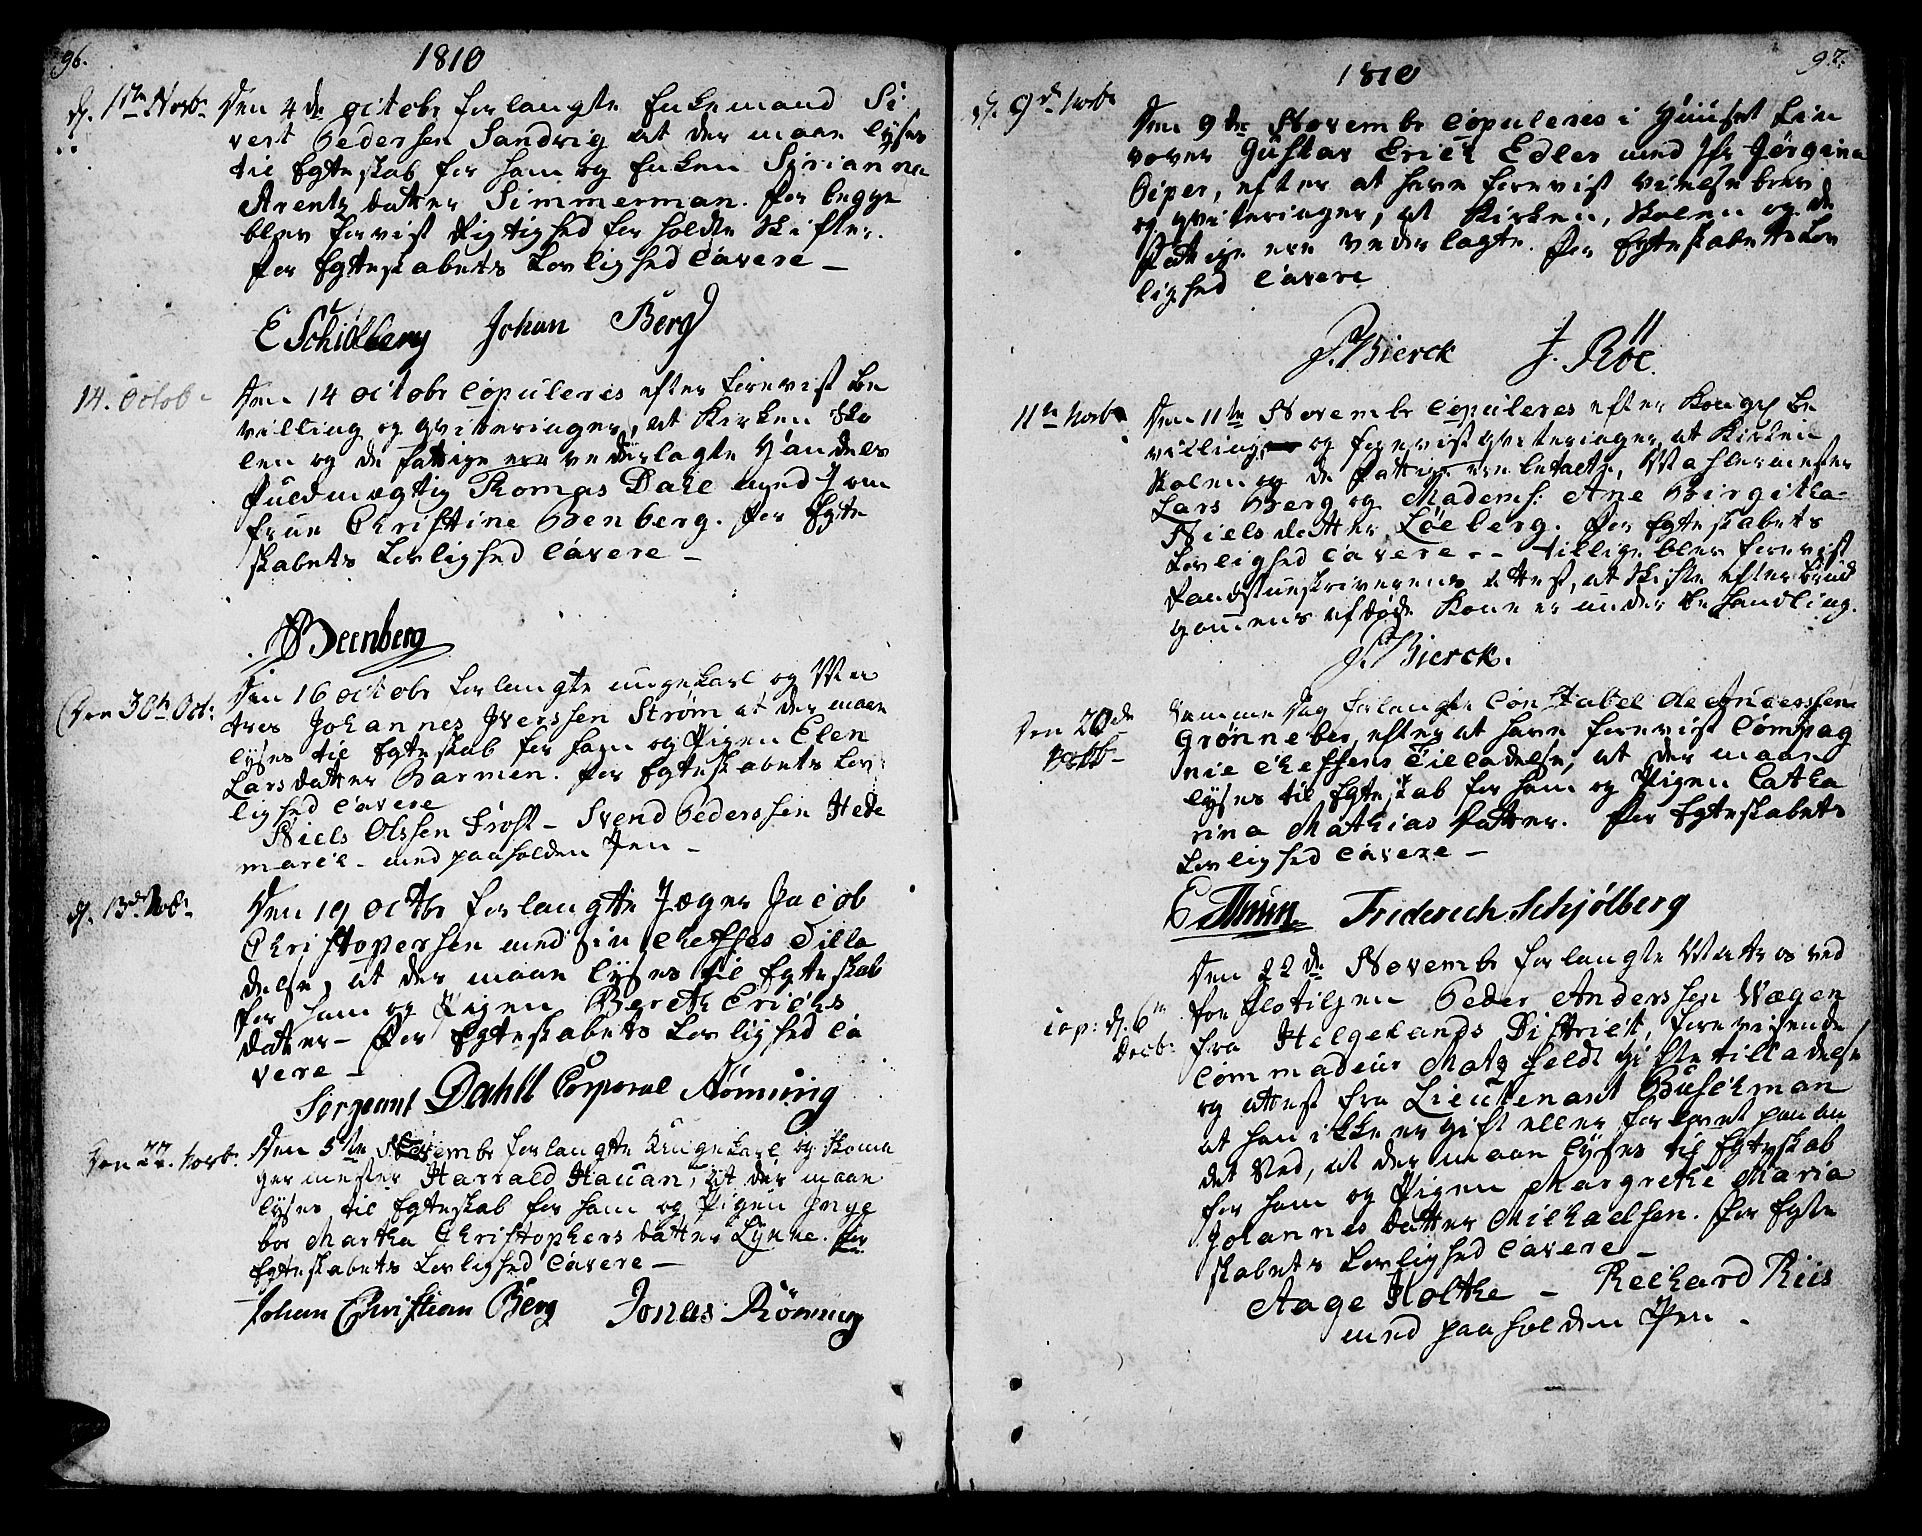 96.
1810
d. 1te Novbr
Den 4de octobr forlangte Enkemand Si
vert Pedersen Sandvig at der maae lyses
til Egteskab for ham og Enken Sirianna
Arentz datter Simmerman. For begge
blev forvist Rigtighed for holdte Skifter.
For Egteskabets Lovlighed cavere –
E Schiølberg Johan Berg
14. Octob
Den 14 octobr copuleres efter forevist be
villing og qviteringer, at Kirken Sko
len og de fattige ere vederlagte Handels
Fuldmægtig Thomas Dahl med Jom
frue Christine Benberg. For Egte
skabets Lovlighed cavere –
Beenberg
Den 30te Oct:
Den 16 octobr forlangte ungekarl og Ma
tros Johannes Iverssen Strøm at der maae
lyses til Egteskab for ham og Pigen Elen
Larsdatter Garmen. For Egteskabets Lov
lighed cavere
Niels Olssen Frost – Svend Pederssen Hede
march – med paaholden Pen –
d. 13de Nob:
Den 19 octbr forlangte Jæger Jacob
Christopersen med sin Chefses Tilla
delse, at der maae lyses til Egteskab
for ham og Pigen Bereth Erichs
datter – For Egteskabets Lovlighed ca
vere –
Sergeant Dahll Corporal Rømning
Den 22. Novb:
Den 5te Novembr forlangte Ungekarl og Skoma
germester Harrald Hauan, at der maae
lyses til Egteskab for ham og Pigen Inge
bor Martha Christophers datter Lynne. For
Egteskabets Lovlighed cavere –
Johan Christian Berg Jonas Rönning
97.
1810
d. 9de Novb
Den 9de Novembr copuleres i Huuset Lie
vover Gustav Erich Edler med Jfr Jørgina
Piper, efter at have forevist vielsebrev
og qviteringer, at Kirken, Skolen og de
Fattige ere vederlagte. For Egteskabets Lov
lighed cavere
P. Bierck J. Röe.
11te Novbr
Den 11te Novembr copuleres efter Kongel be
villing, og forevist qviteringer, at Kirken
Skolen og de Fattige ere betalte, Mahlermester
Lars Berg og Madems: Ane Birgitha
Niels datter Løeberg. For Egteskabets
Lovlighed cavere – – tillige blev forevist
Raadstueskriverens Attest, at Skifte efter Brud
gommens afdøde Kone er under behandling.
P. Bierck.
Den 20de
Novb –
Samme Dag forlangte Constabel Ole Anderssen
Grønneber, efter at have forevist Compag
nie Cheffens Tilladelse, at der maae
lyses til Egteskab for ham og Pigen Catha
rina Mathias datter. For Egteskabets
Lovlighed cavere –
E Thun Friderich Schjølberg
cop: d. 6te
Decb:
Den 22de Novembr forlangte Matros ved
Roe Flotiljen Peder Anderssen Wægen
fra Helgelands District, forevisende
Commadeur Motzfeldt Giftetilladelse
og attest fra Lieutenant Buschman
at han ikke er gift eller forlovet paa an
det Sted, at der maae lyses til Egteskab
for ham og Pigen Margrethe Maria
Johannes datter Michaelsen. For Egte
skabets Lovlighed cavere –
Aage Holthe – Reichard Riis
med paaholden Pen –